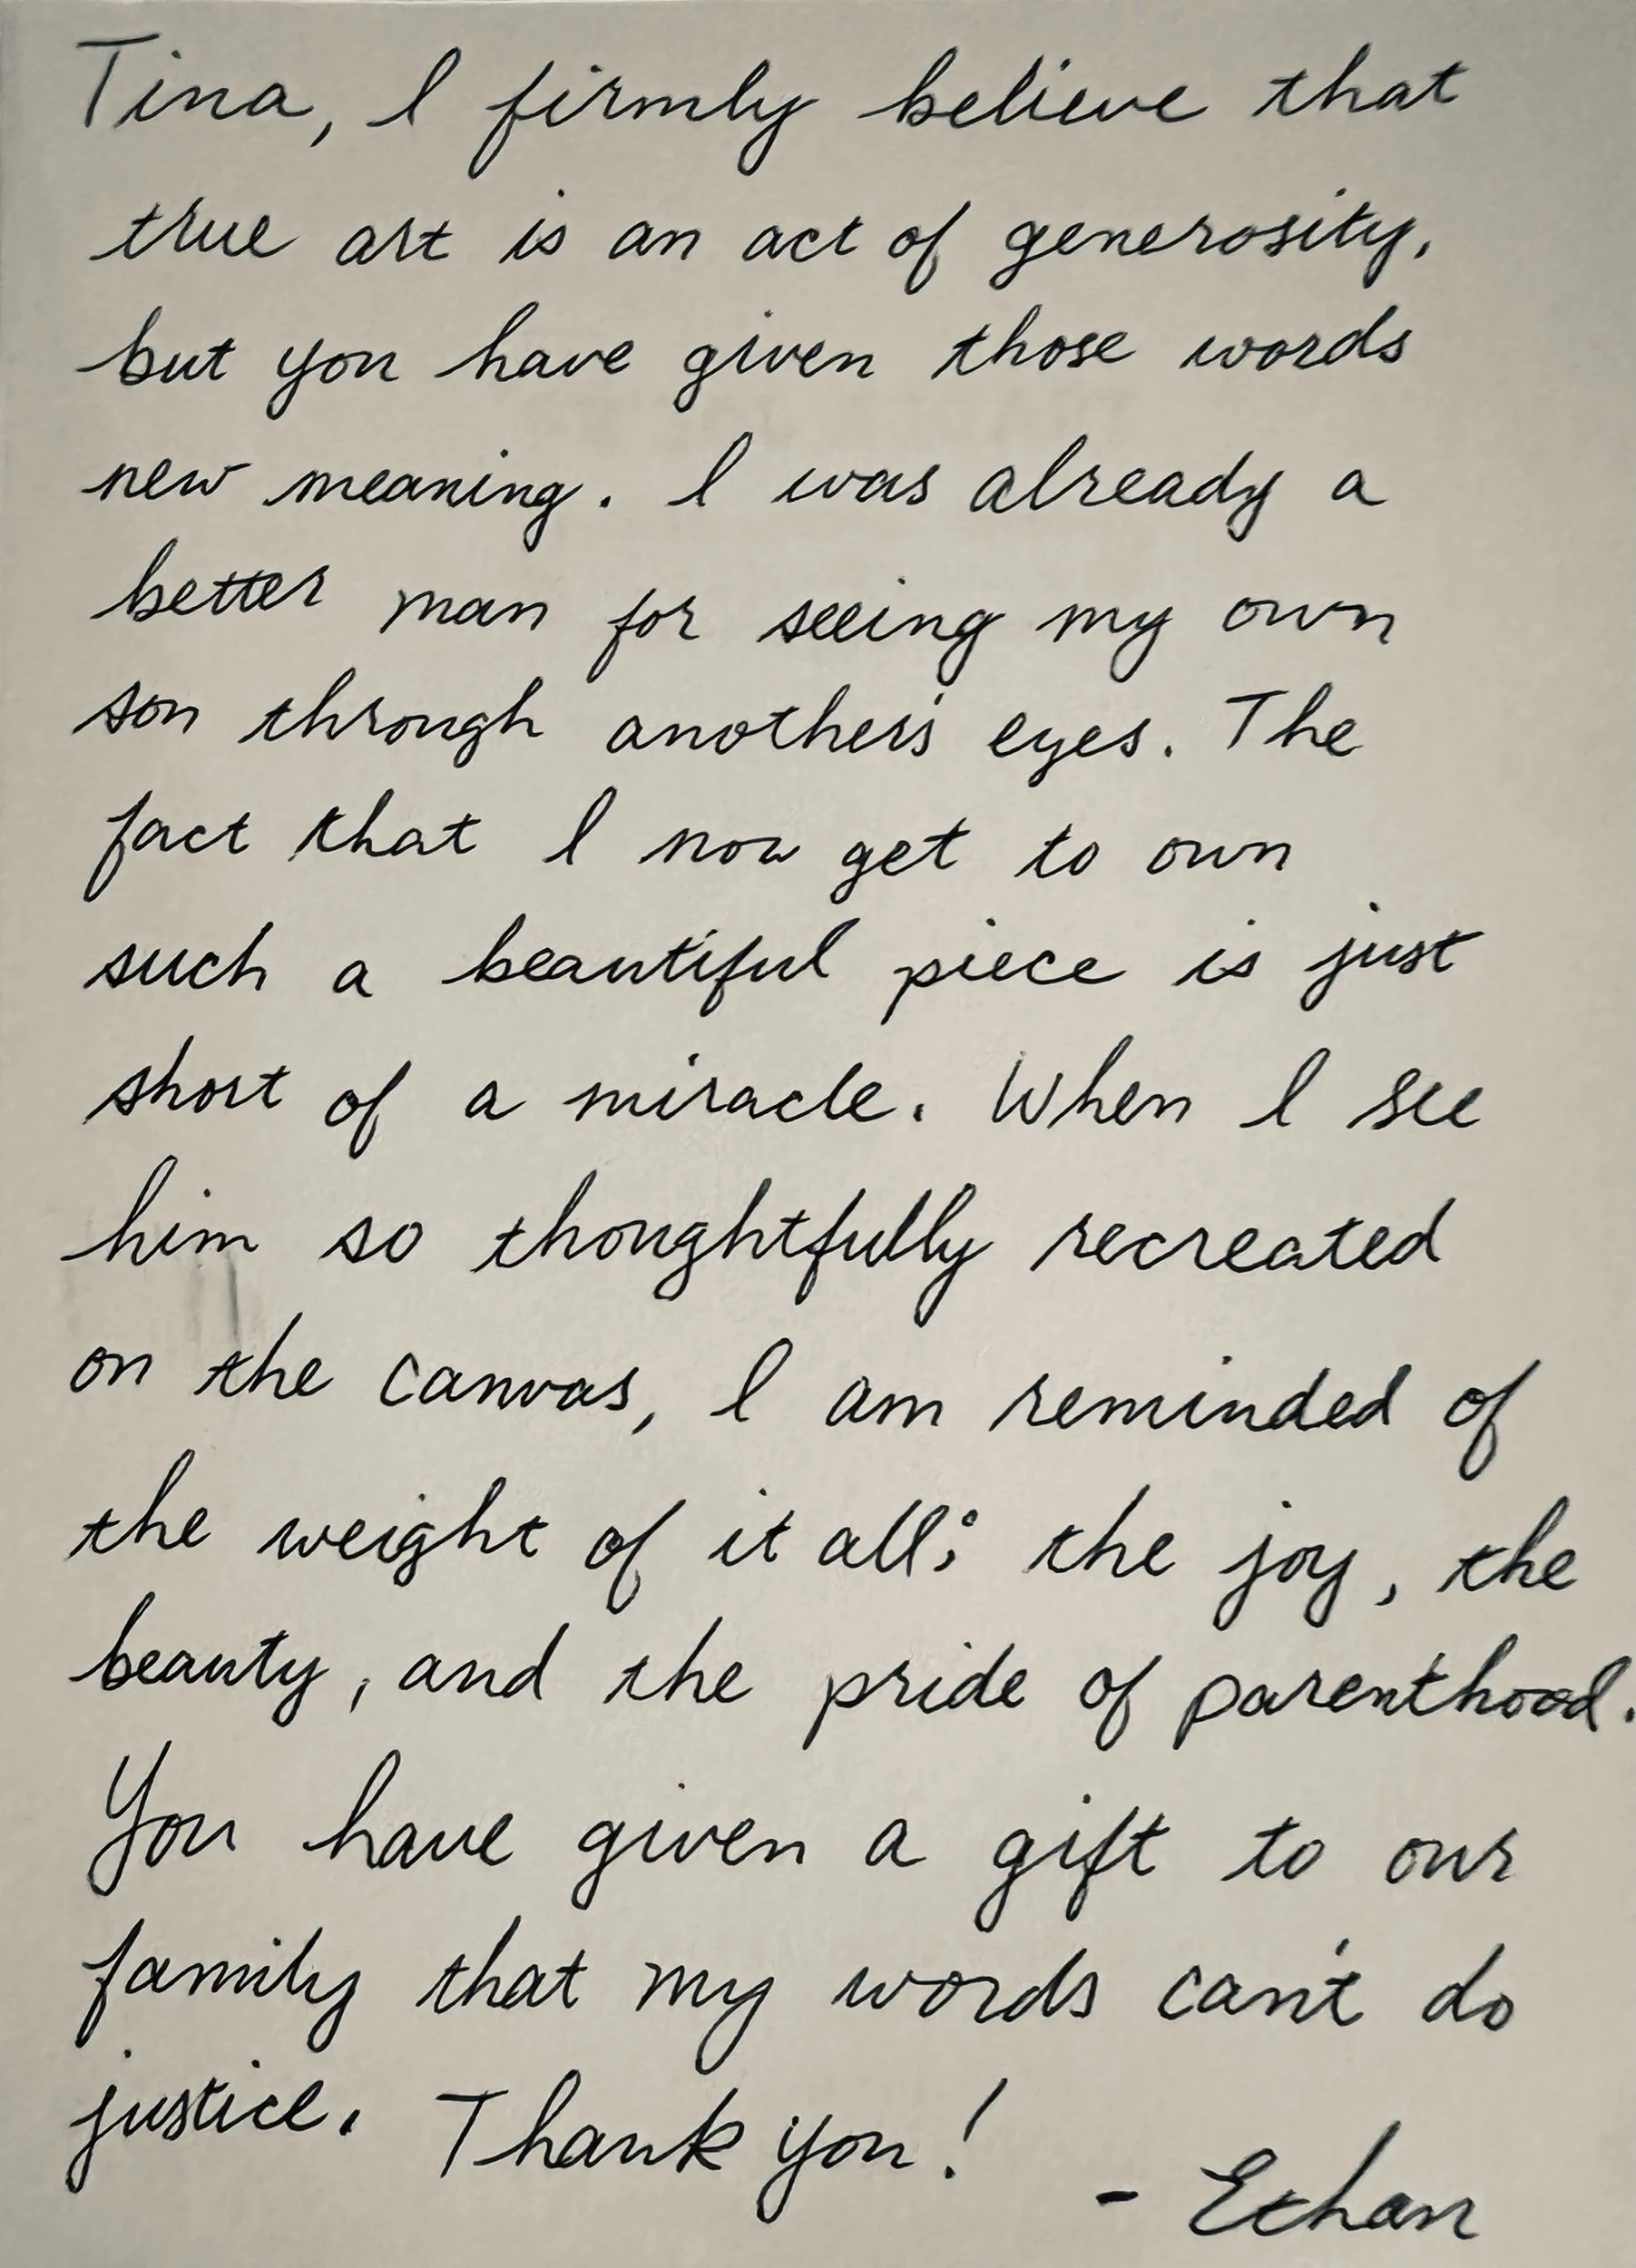 Tina, I firmly believe that
true art is an act of generosity,
but you have given those words
new meaning. I was already a
better man for seeing my own
son through another's eyes. The
fact that I now get to own
such a beautiful piece is just
short of a miracle. When I see
him so thoughtfully recreated
on the canvas, I am reminded of
the weight of it all: the joy, the
beauty, and the pride of parenthood.
You have given a gift to our
family that my words can't do
justice. Thank you!
- Ethan